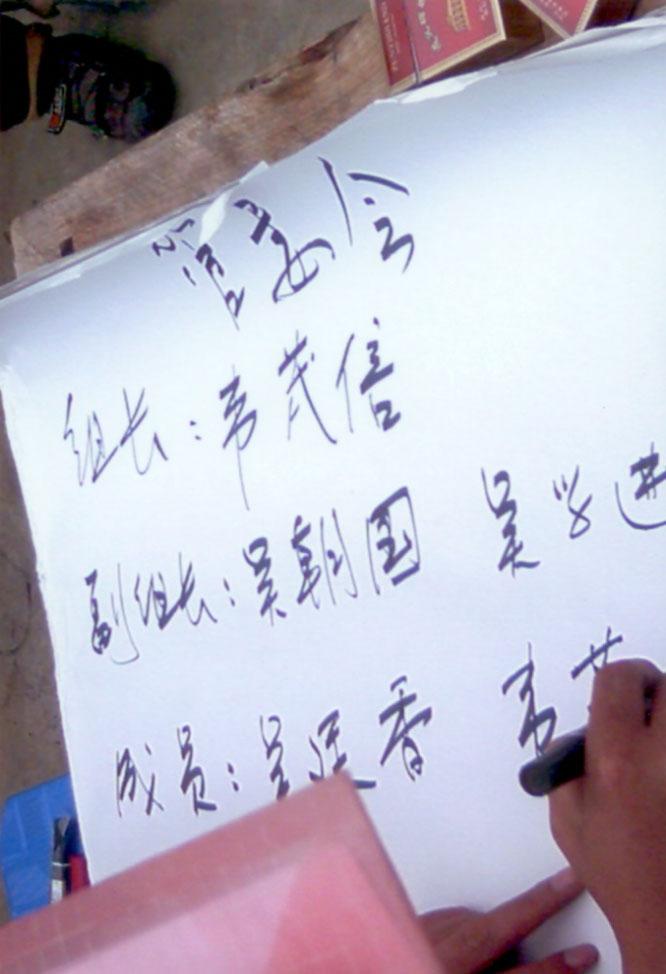 管委会
组长:韦茂信
副组长:吴朝国 吴学进
成员:吴 香 韦